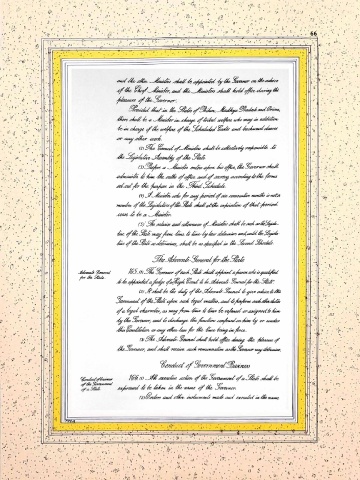 66
and the other Ministers shall be appointed by the Governor on the advice
of the Chief Minister, and the Ministers shall hold office during the
pleasure of the Governor:
Provided that in the States of Bihar, Madhya Pradesh and Orissa,
there shall be a Minister in charge of tribal welfare who may in addition
be in charge of the welfare of the Scheduled Castes and backward classes
or any other work.
(2) The Council of Ministers shall be collectively responsible to
the Legislative Assembly of the State.
(3) Before a Minister enters upon his office, the Governor shall
administer to him the oaths of office and of secrecy according to the forms
set out for the purpose in the Third Schedule.
(4) A Minister who for any period of six consecutive months is not a
member of the Legislature of the State shall at the expiration of that period
cease to be a Minister.
(5) The salaries and allowances of Ministers shall be such as the Legisla-
ture of the State may from time to time by law determine and, until the Legisla-
ture of the State so determines, shall be as specified in the Second Schedule.
The Advocate-General for the State
Advocate-General
for the State.
165. (1) The Governor of each State shall appoint a person who is qualified
to be appointed a Judge of a High Court to be Advocate-General for the State.
(2) It shall be the duty of the Advocate-General to give advice to the
Government of the State upon such legal matters, and to perform such other duties
of a legal character, as may from time to time be referred or assigned to him
by the Governor, and to discharge the functions conferred on him by or under
this Constitution or any other law for the time being in force.
(3) The Advocate-General shall hold office during the pleasure of
the Governor, and shall receive such remuneration as the Governor may determine.
Conduct of Government Business
Conduct of business
of the Government
of a State.
166. (1) All executive action of the Government of a State shall be
expressed to be taken in the name of the Governor.
(2) Orders and other instruments made and executed in the name